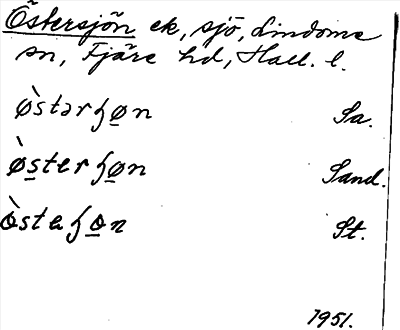 Östersjön ek, sjö, Lindome
sn, Fjäre hd, Hall. l.
ø̀stərʃøn Sa.
ø̀sterʃøn Sand.
ø̀steʃøn St.
1951.